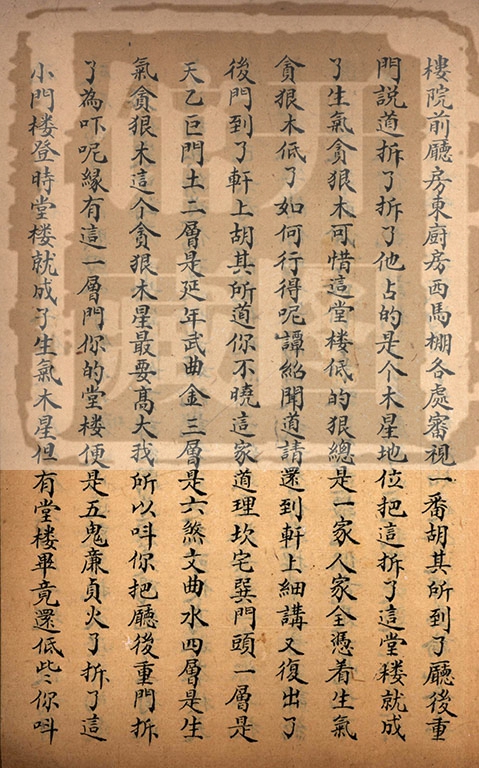 樓院前廳房東厨房西馬棚各處審視一番胡其所到了廳後重
門説道拆了拆了他占的是个木星地位把這拆了這堂楼就成
了生氣貪狠木可惜這堂楼低的狠總是一家人家全憑着生氣
貪狠木低了如何行得呢譚紹聞道請還到軒上細講又復出了
後門到了軒上胡其所道你不曉這家道理坎宅巽門頭一層是
天乙巨門土二層是延年武曲金三層是六煞文曲水四層是生
氣貪狠木這个貪狠木星最要髙大我所以呌你把廳後重門拆
了為吓呢緣有這一層門你的堂楼便是五鬼廉貞火了拆了這
小門楼登時堂楼就成了生氣木星但有堂楼畢竟還低些〻你呌